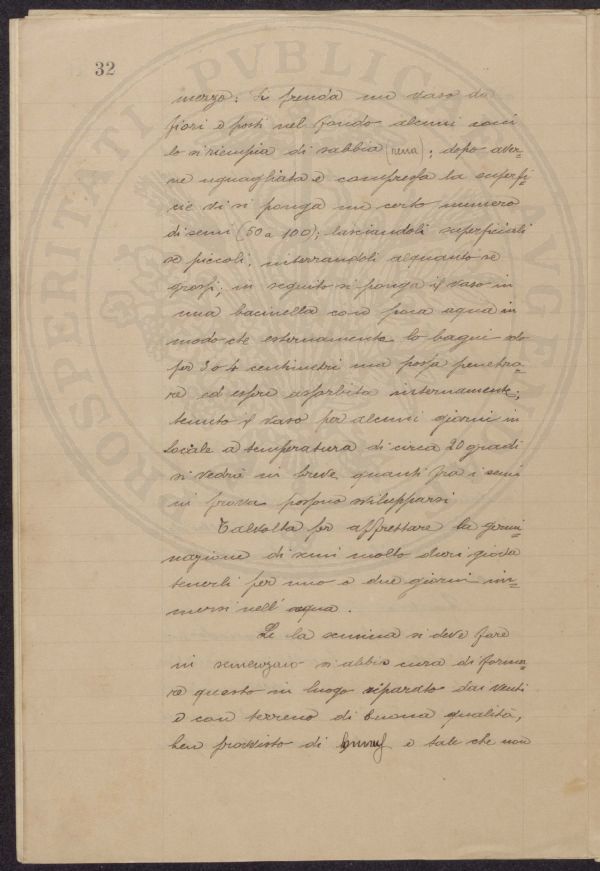 32
mezzo: Si prenda un vaso da
fiori e posti nel fondo alcuni cocci
lo si riempia di sabbia (rena); dopo aver=
ne uguagliata e compressa la superfi=
cie vi si ponga un certo numero
di semi (50 a 100); lasciandoli superficiali
se piccoli; interrandoli alquanto se
grossi; in seguito si ponga il vaso in
una bacinella con poca aqua in
modo che esternamente lo bagni
per 3 o 4 centimetri ma possa penetra=
re ed essere assorbita internamente;
tenuto il vaso per alcuni giorni in
locale a temperatura di circa 20 gradi
si vedrà in breve quanti fra i semi
in prova possono svilupparsi
Talvolta per affrettare la germi=
nazione di semi molto duri giova
tenerli per uno o due giorni im=
mersi nell'acqua.
Se la semina si deve fare
in semenzaio si abbia cura di forma=
re questo in luogo riparato dai venti
e con terreno di buona qualità,
ben provvisto di humus e tale che non
PROSPERITATI PVBLICAE AVGEN